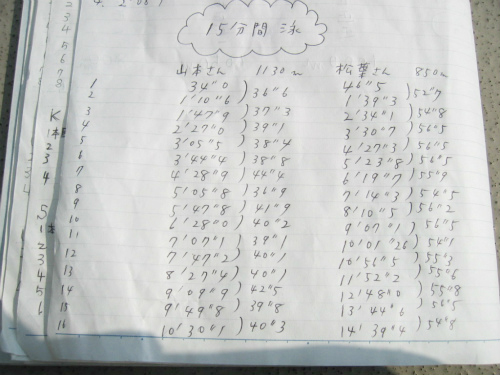 15分間泳
山本さん 1130m 松葉さん 850m
1 34"0 46"5
2 1'10"6 )36"6 1'39"3 )52"7
3 1'47"9 )37"3 2'34"1 )54"8
4 2'27"0 )39"1 3'30"7 )56"5
5 3'05"5 )38"4 4'27"3 )56"5
6 3'44"4 )38"8 5'23"8 )56"5
7 4'28"9 )44"4 6'19"7 )55"9
8 5'05"8 )36"9 7'14"3 )54"5
9 5'47"8 )41"9 8'10"5 )56"2
10 6'28"0 )40"2 9'07"1 )56"5
11 7'07"1 )39"1 10'01"26 )54"1
12 7'47"2 )40"1 10'56"5 )55"3
13 8'27"4 )40"1 11'52"2 )55"6
14 9'09"9 )42"5 12'48"0 )55"8
15 9'49"8 )39"8 13'44"6 )56"5
16 10'30"1 )40"3 14'39"4 )54"8
3
4
5
6
7
8
K
2
3
4
5
1
2
3
4
5
6